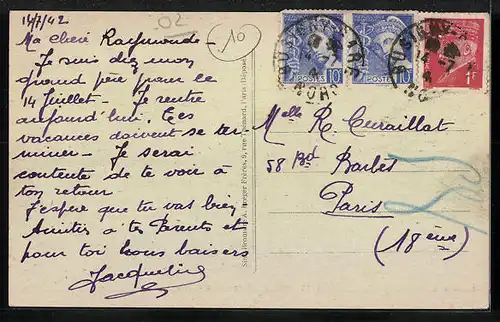 14/7/42
02
10
Ma chère Raymonde -
Je suis chez mon
grand père pour le
14 Juillet - Je rentre
aujourd'hui. Tes
vacances doivent se ter
miner - Je serai
contente de te voir à
ton retour
J'espère que tu vas bien
Amitiés à tes Parents et
pour toi bons baisers
Jacqueline
POSTES
10
POSTES
1F
Melle R. Curaillat
58 Bd Barbès
Paris
(18ème)